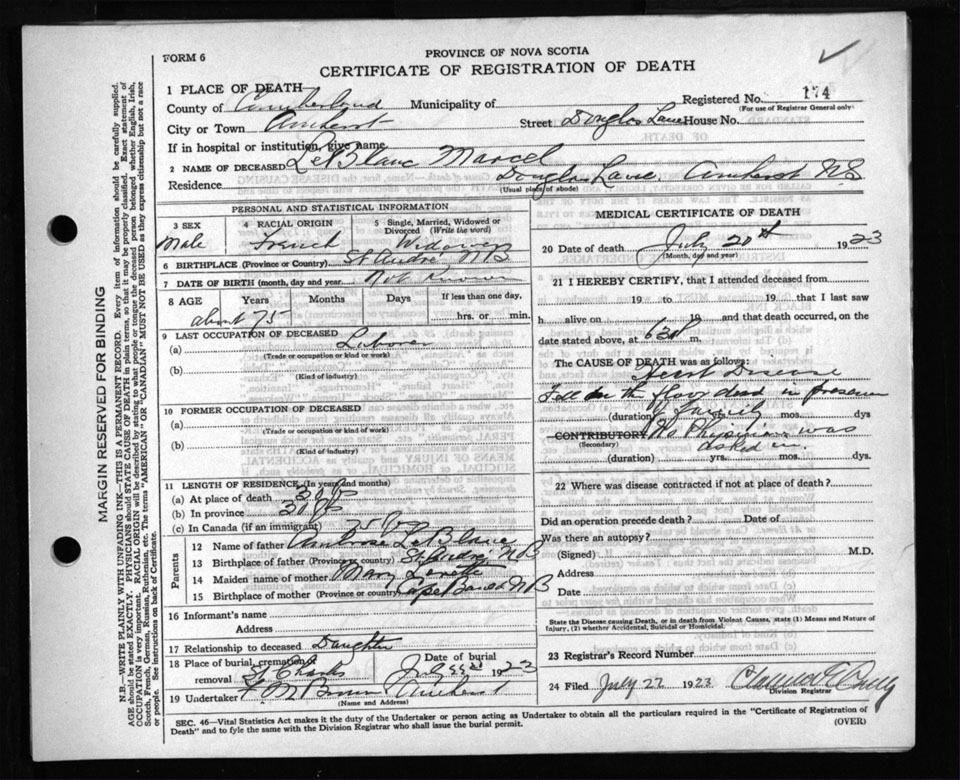 FORM 6
PROVINCE OF NOVA SCOTIA
CERTIFICATE OF REGISTRATION OF DEATH
1 PLACE OF DEATH
County of Cumberland Municipality of Registered No. 174
(For use of Registrar General only)
City or Town Amherst Street Douglas Lane House No.
If in hospital or institution, give name
2 NAME OF DECEASED LeBlanc Marcel
Residence Douglas Lane Amherst NS
(Usual place of abode)
PERSONAL AND STATISTICAL INFORMATION
3 SEX Male
4 RACIAL ORIGIN French
5 Single, Married, Widowed or Divorced (Write the word) Widower
6 BIRTHPLACE (Province or Country) St André NB
7 DATE OF BIRTH (month, day and year) Not Known
8 AGE Years Months Days If less than one day,
about 75 hrs. or min.
9 LAST OCCUPATION OF DECEASED
(a) Laborer
(Trade or occupation or kind of work)
(b)
(Kind of industry)
10 FORMER OCCUPATION OF DECEASED
(a)
(Trade or occupation or kind of work)
(b)
(Kind of industry)
11 LENGTH OF RESIDENCE (In years and months)
(a) At place of death 30
(b) In province 30
(c) In Canada (if an immigrant) 75
Parents
12 Name of father Ambrose LeBlanc
13 Birthplace of father (Province or country) St André NB
14 Maiden name of mother Mary
15 Birthplace of mother (Province or country) Cape NB
16 Informant's name
Address
17 Relationship to deceased Daughter
18 Place of burial, cremation or removal St Charles Date of burial 1923
19 Undertaker Amherst
(Name and Address)
MEDICAL CERTIFICATE OF DEATH
20 Date of death July 20th 1923
(Month, day and year)
21 I HEREBY CERTIFY, that I attended deceased from
19 to 19 that I last saw
h alive on 19 and that death occurred, on
date stated above, at 630 m.
The CAUSE OF DEATH was as follows:
Heart Disease
Fell on the floor dead in presence
of family
(duration) mos. dys
CONTRIBUTORY No Physician was
(Secondary) asked in
(duration) yrs. mos. dys.
22 Where was disease contracted if not at place of death?
Did an operation precede death? Date of
Was there an autopsy?
(Signed) M.D.
Address
Date
State the Disease causing Death, or in death from Violent Causes, state (1) Means and Nature of
Injury, (2) whether Accidental, Suicidal or Homicidal.
23 Registrar's Record Number
24 Filed July 22 1923
Division Registrar
SEC. 46—Vital Statistics Act makes it the duty of the Undertaker or person acting as Undertaker to obtain all the particulars required in the "Certificate of Registration of
Death" and to fyle the same with the Division Registrar who shall issue the burial permit. (OVER)
MARGIN RESERVED FOR BINDING
N.B.—WRITE PLAINLY WITH UNFADING INK—THIS IS A PERMANENT RECORD. Every item of information should be carefully supplied.
AGE should be stated EXACTLY. PHYSICIANS should STATE CAUSE OF DEATH in plain terms, so that it may be properly classified. Exact statement of
OCCUPATION is very important. RACIAL ORIGIN will be described by stating to what people or tongue the deceased person belonged whether English, Irish,
Scotch, French, German, Russian, Ruthenian, etc. The terms "AMERICAN" or "CANADIAN" MUST NOT BE USED as they express citizenship but not a race
or people. See instructions on back of Certificate.